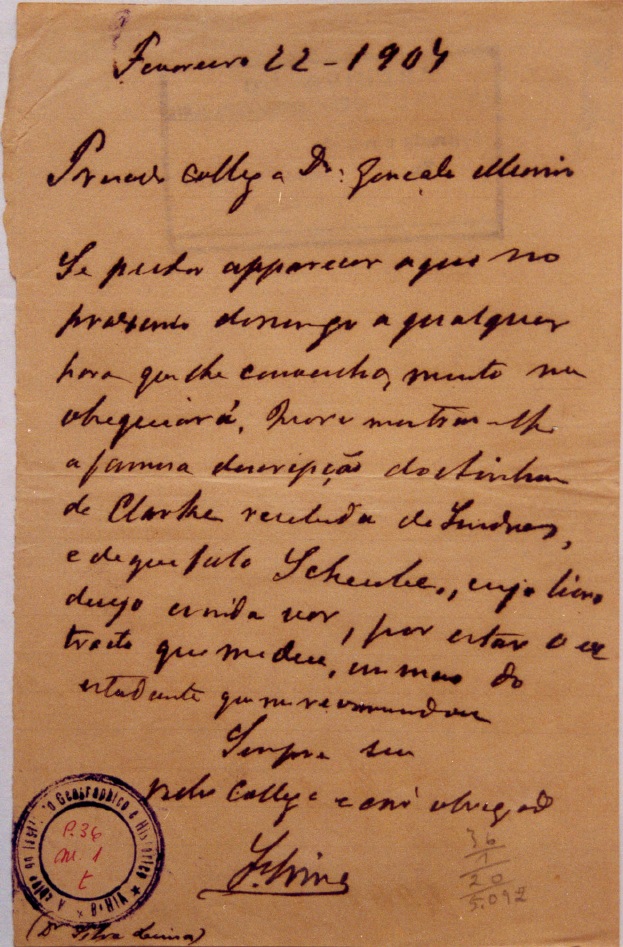 Fevereiro 22 - 1904
Prezado collega Dr. Gonçalo Moniz
Se puder apparecer aqui no
proximo domingo a qualquer
hora que lhe convenha, muito me
obsequiará. Quero mostrar-lhe
a famosa descripção do Ainhum
de Clarke recebida de Londres,
e de que fala Scheube, cujo livro
desejo ainda ver, por estar o ex
tracto que me deu, em mão do
estudante que me recommendou
Sempre seu
velho collega e am.º obrigado
S. Lima
Archivo do Instituto Geographico e Historico
P. 36
M. 1
t
(Dr Silva Lima)
36
1
20
5.092